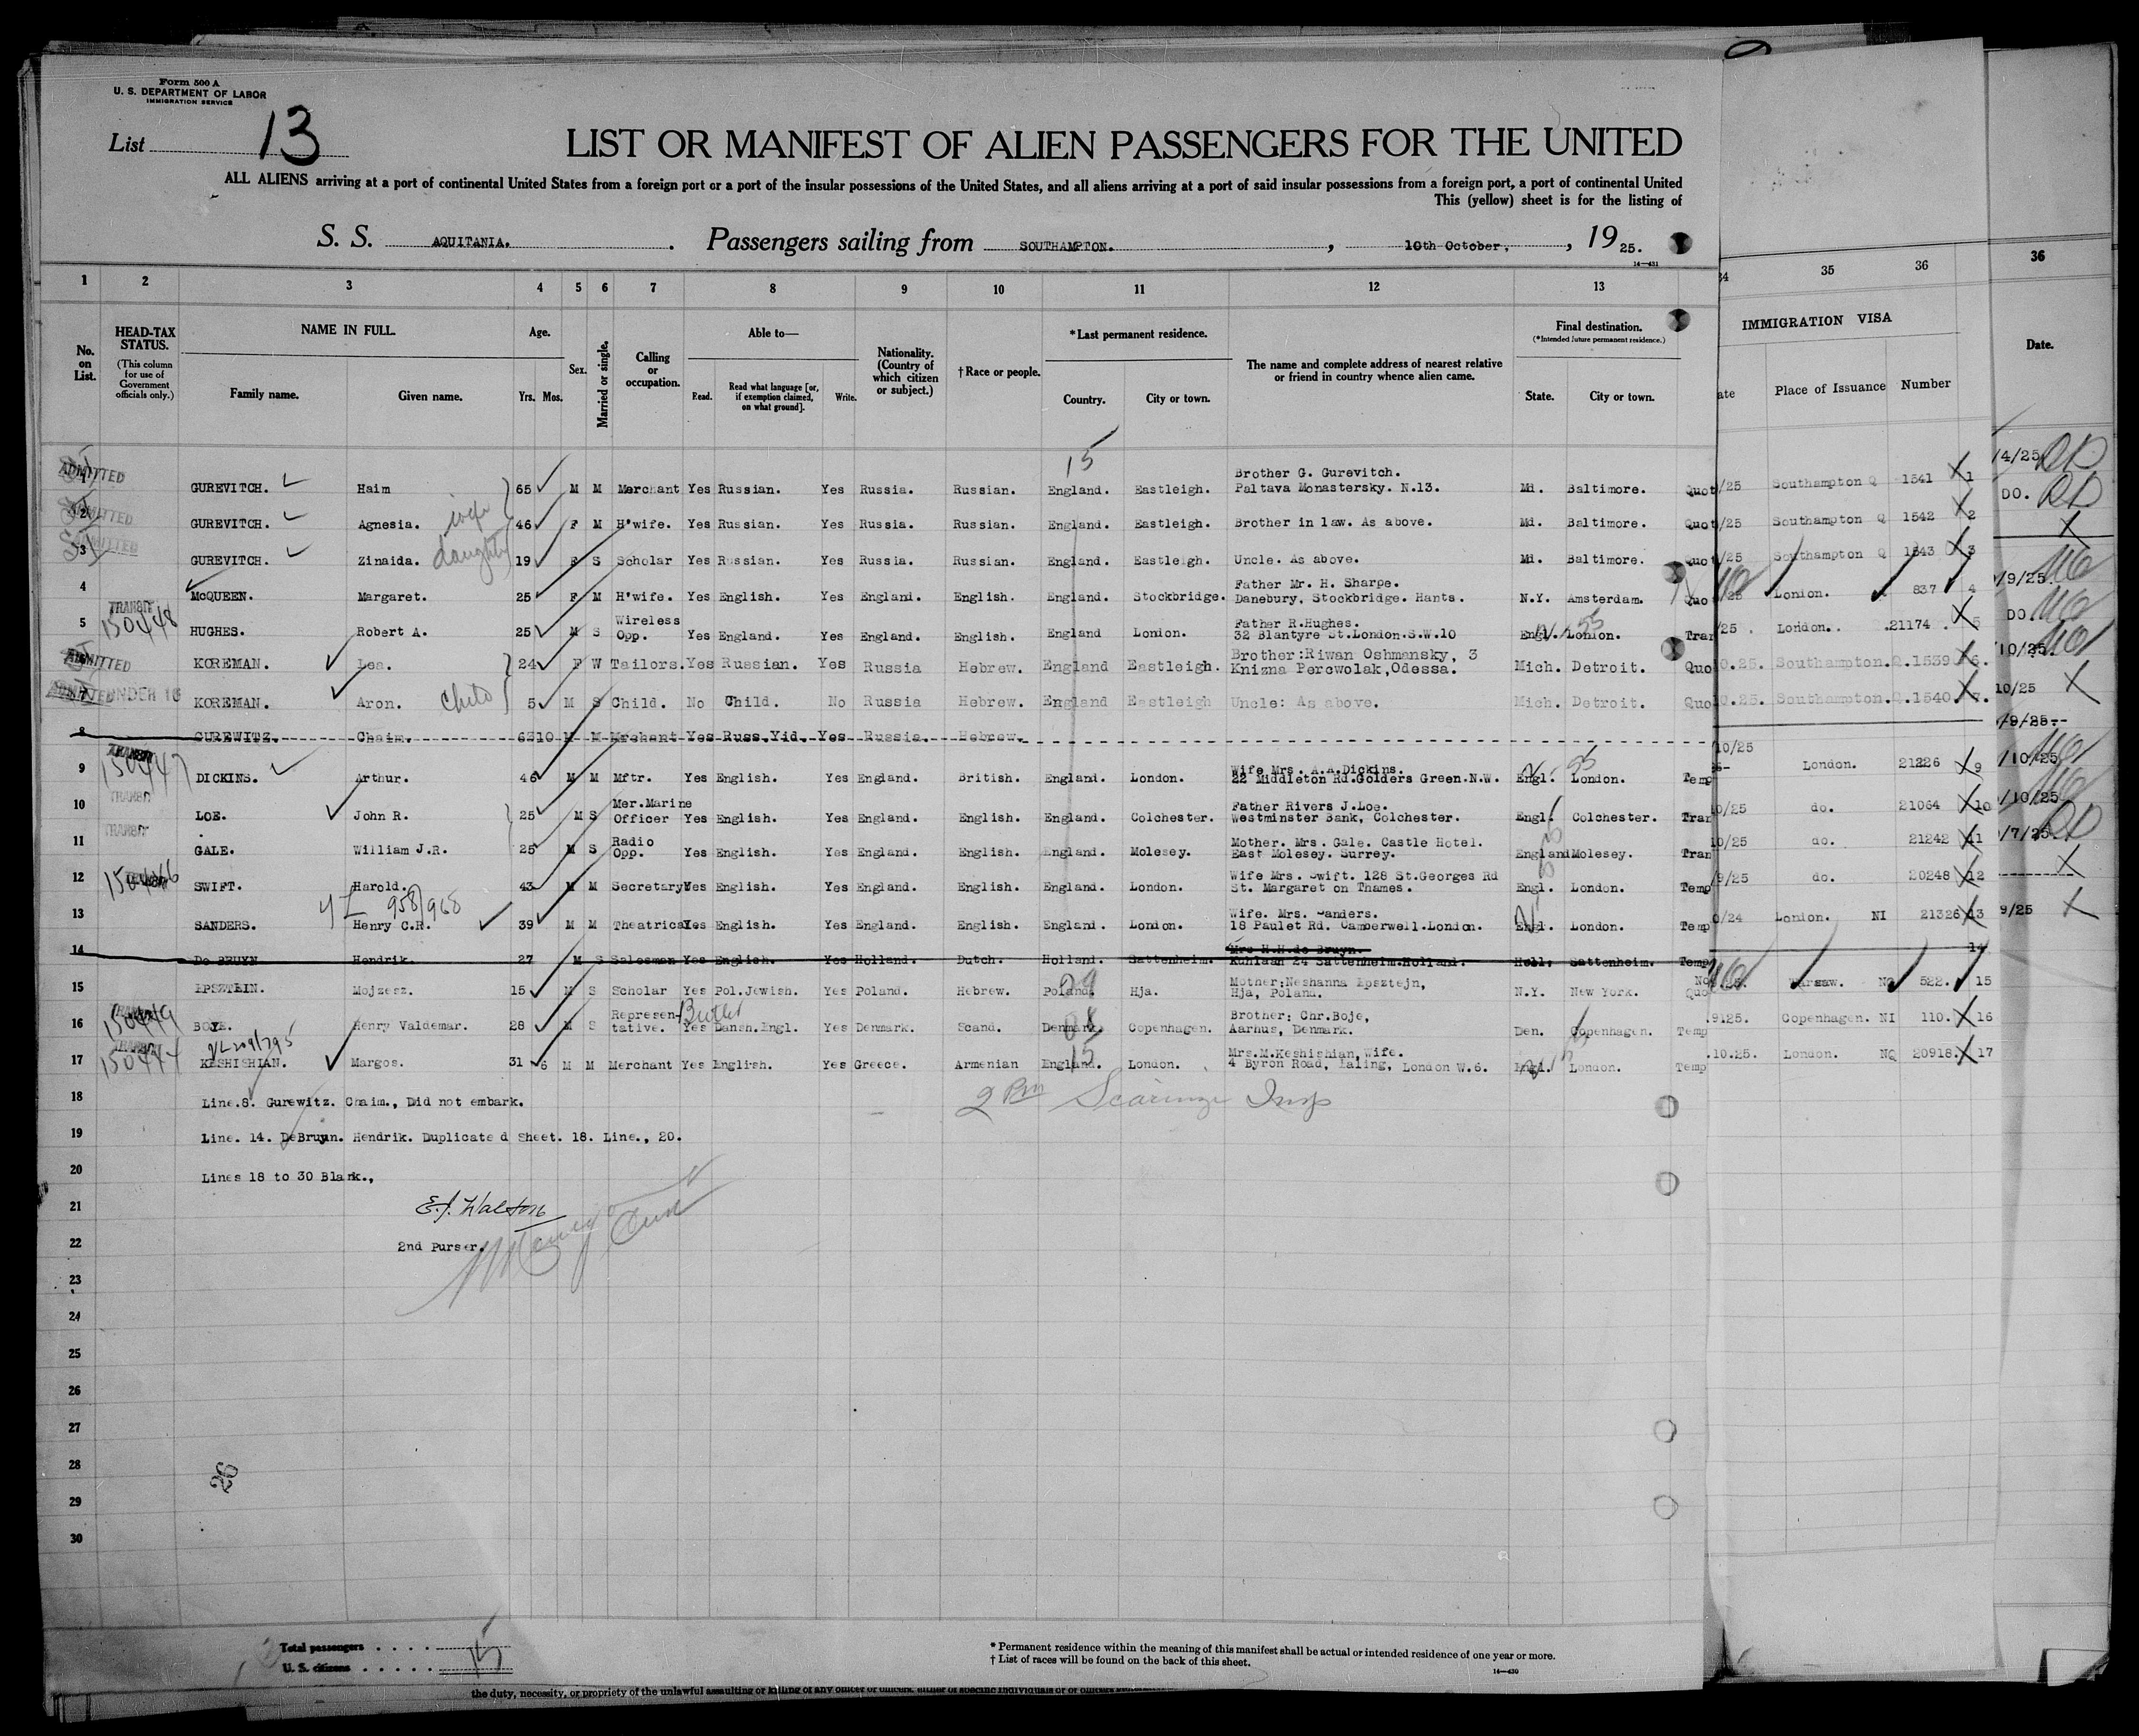 Form 500 A
U. S. DEPARTMENT OF LABOR
IMMIGRATION SERVICE
List 13
LIST OR MANIFEST OF ALIEN PASSENGERS FOR THE UNITED
ALL ALIENS arriving at a port of continental United States from a foreign port or a port of the insular possessions of the United States, and all aliens arriving at a port of said insular possessions from a foreign port, a port of continental United
This (yellow) sheet is for the listing of
S. S. AQUITANIA. Passengers sailing from SOUTHAMPTON. , 10th October, , 19 25.
14—431
1 2 3 4 5 6 7 8 9 10 11 12 13 34 35 36 36
No. on List.
HEAD-TAX STATUS.
(This column for use of Government officials only.)
NAME IN FULL.
Family name. Given name.
Age.
Yrs. Mos.
Sex.
Married or single.
Calling or occupation.
Able to—
Read. Read what language [or, if exemption claimed, on what ground]. Write.
Nationality. (Country of which citizen or subject.)
† Race or people.
* Last permanent residence.
Country. City or town.
The name and complete address of nearest relative or friend in country whence alien came.
Final destination.
(* Intended future permanent residence.)
State. City or town.
IMMIGRATION VISA
ate Place of Issuance Number Date.
15
1 ADMITTED GUREVITCH. Haim 65 M M Merchant Yes Russian. Yes Russia. Russian. England. Eastleigh. Brother G. Gurevitch. Paltava Monastersky. N.13. Md. Baltimore. Quot /25 Southampton Q 1541 1 /4/25
2 ADMITTED GUREVITCH. Agnesia. wife 46 F M H'wife. Yes Russian. Yes Russia. Russian. England. Eastleigh. Brother in law. As above. Md. Baltimore. Quot /25 Southampton Q 1542 2 DO.
3 ADMITTED GUREVITCH. Zinaida. daughter 19 F S Scholar Yes Russian. Yes Russia. Russian. England. Eastleigh. Uncle. As above. Md. Baltimore. Quot /25 Southampton Q 1543 3
4 McQUEEN. Margaret. 25 F M H'wife. Yes English. Yes England. English. England. Stockbridge. Father Mr. H. Sharpe. Danebury, Stockbridge. Hants. N.Y. Amsterdam. Quo /25 London. 837 4 /9/25
5 TRANSIT 150448 HUGHES. Robert A. 25 M S Wireless Opp. Yes England. Yes England. English. England London. Father R.Hughes. 32 Blantyre St.London.S.W.10 Engl. London. Tran /25 London. 21174 5 DO
6 ADMITTED KOREMAN. Lea. 24 F W Tailors. Yes Russian. Yes Russia Hebrew. England Eastleigh. Brother:Riwan Oshmansky, 3 Knizna Perewolak,Odessa. Mich. Detroit. Quo 0.25. Southampton.Q.1539 6. 10/25.
7 ADMITTED UNDER 16 KOREMAN. Aron. Child 5 M S Child. No Child. No Russia Hebrew. England Eastleigh Uncle: As above. Mich. Detroit. Quo 0.25. Southampton.Q.1540. 7. 10/25
8 GUREWITZ. Chaim. 6310 M M Mrchant Yes Russ.Yid. Yes Russia. Hebrew. /9/25--
9 TRANSIT 150447 DICKINS. Arthur. 46 M M Mftr. Yes English. Yes England. British. England. London. Wife Mrs. A.A.Dickins. 22 Middleton Rd.Golders Green.N.W. Engl. London. Temp 10/25 London. 21226 9 /10/25
10 TRANSIT LOE. John R. 25 M S Mer.Marine Officer Yes English. Yes England. English. England. Colchester. Father Rivers J.Loe. Westminster Bank, Colchester. Engl. Colchester. Tran 0/25 do. 21064 10 /10/25
11 TRANSIT GALE. William J.R. 25 M S Radio Opp. Yes English. Yes England. English. England. Molesey. Mother. Mrs. Gale. Castle Hotel. East Molesey. Surrey. England Molesey. Tran 10/25 do. 21242 11 /7/25
12 SWIFT. Harold. 43 M M Secretary Yes English. Yes England. English. England. London. Wife Mrs. Swift. 128 St.Georges Rd St. Margaret on Thames. Engl. London. Temp /9/25 do. 20248 12
13 SANDERS. Henry C.R. 39 M M Theatrical Yes English. Yes England. English. England. London. Wife. Mrs. Sanders. 18 Paulet Rd. Camberwell.London. Engl. London. Temp 0/24 London. NI 21326 13 9/25
14 De BRUYN Hendrik 27 M S Salesman Yes English. Yes Holland. Dutch. Holland. Sattenheim. Mrs H.H.de Bruyn. Kuhlaan 24 Sattenheim.Holland. Holl. Sattenheim. Temp 14
15 EPSZTEIN. Mojzesz. 15 M S Scholar Yes Pol.Jewish. Yes Poland. Hebrew. Poland. Hja. Mother:Neshanna Epsztejn, Hja, Poland. N.Y. New York. No Quo Warsaw. NQ 522. 15
16 150449 BOJE. Henry Valdemar. 28 M S Represen- tative. Yes Dansh.Engl. Yes Denmark. Scand. Denmark. Copenhagen. Brother: Chr.Boje, Aarhus, Denmark. Den. Copenhagen. Temp 9125. Copenhagen. NI 110. 16
17 KESHISHIAN. Margos. 31 6 M M Merchant Yes English. Yes Greece. Armenian England. London. Mrs.M.Keshishian,Wife. 4 Byron Road, Ealing, London W.6. Engl. London. Temp .10.25. London. NQ 20918. 17
18 Line.8. Gurewitz. Chaim., Did not embark.
2 Pm Scaringi Insp
19 Line. 14. DeBruyn. Hendrik. Duplicate d Sheet. 18. Line., 20.
20 Lines 18 to 30 Blank.,
21 E.J. Walton
22 2nd Purser.
23
24
25
26
27
28
29
30
26
Total passengers . . . . 15
U. S. citizens . . . . .
* Permanent residence within the meaning of this manifest shall be actual or intended residence of one year or more.
† List of races will be found on the back of this sheet.
14—430
the duty, necessity, or propriety of the unlawful assaulting or killing of any officer or officers, either of specific individuals or of officers